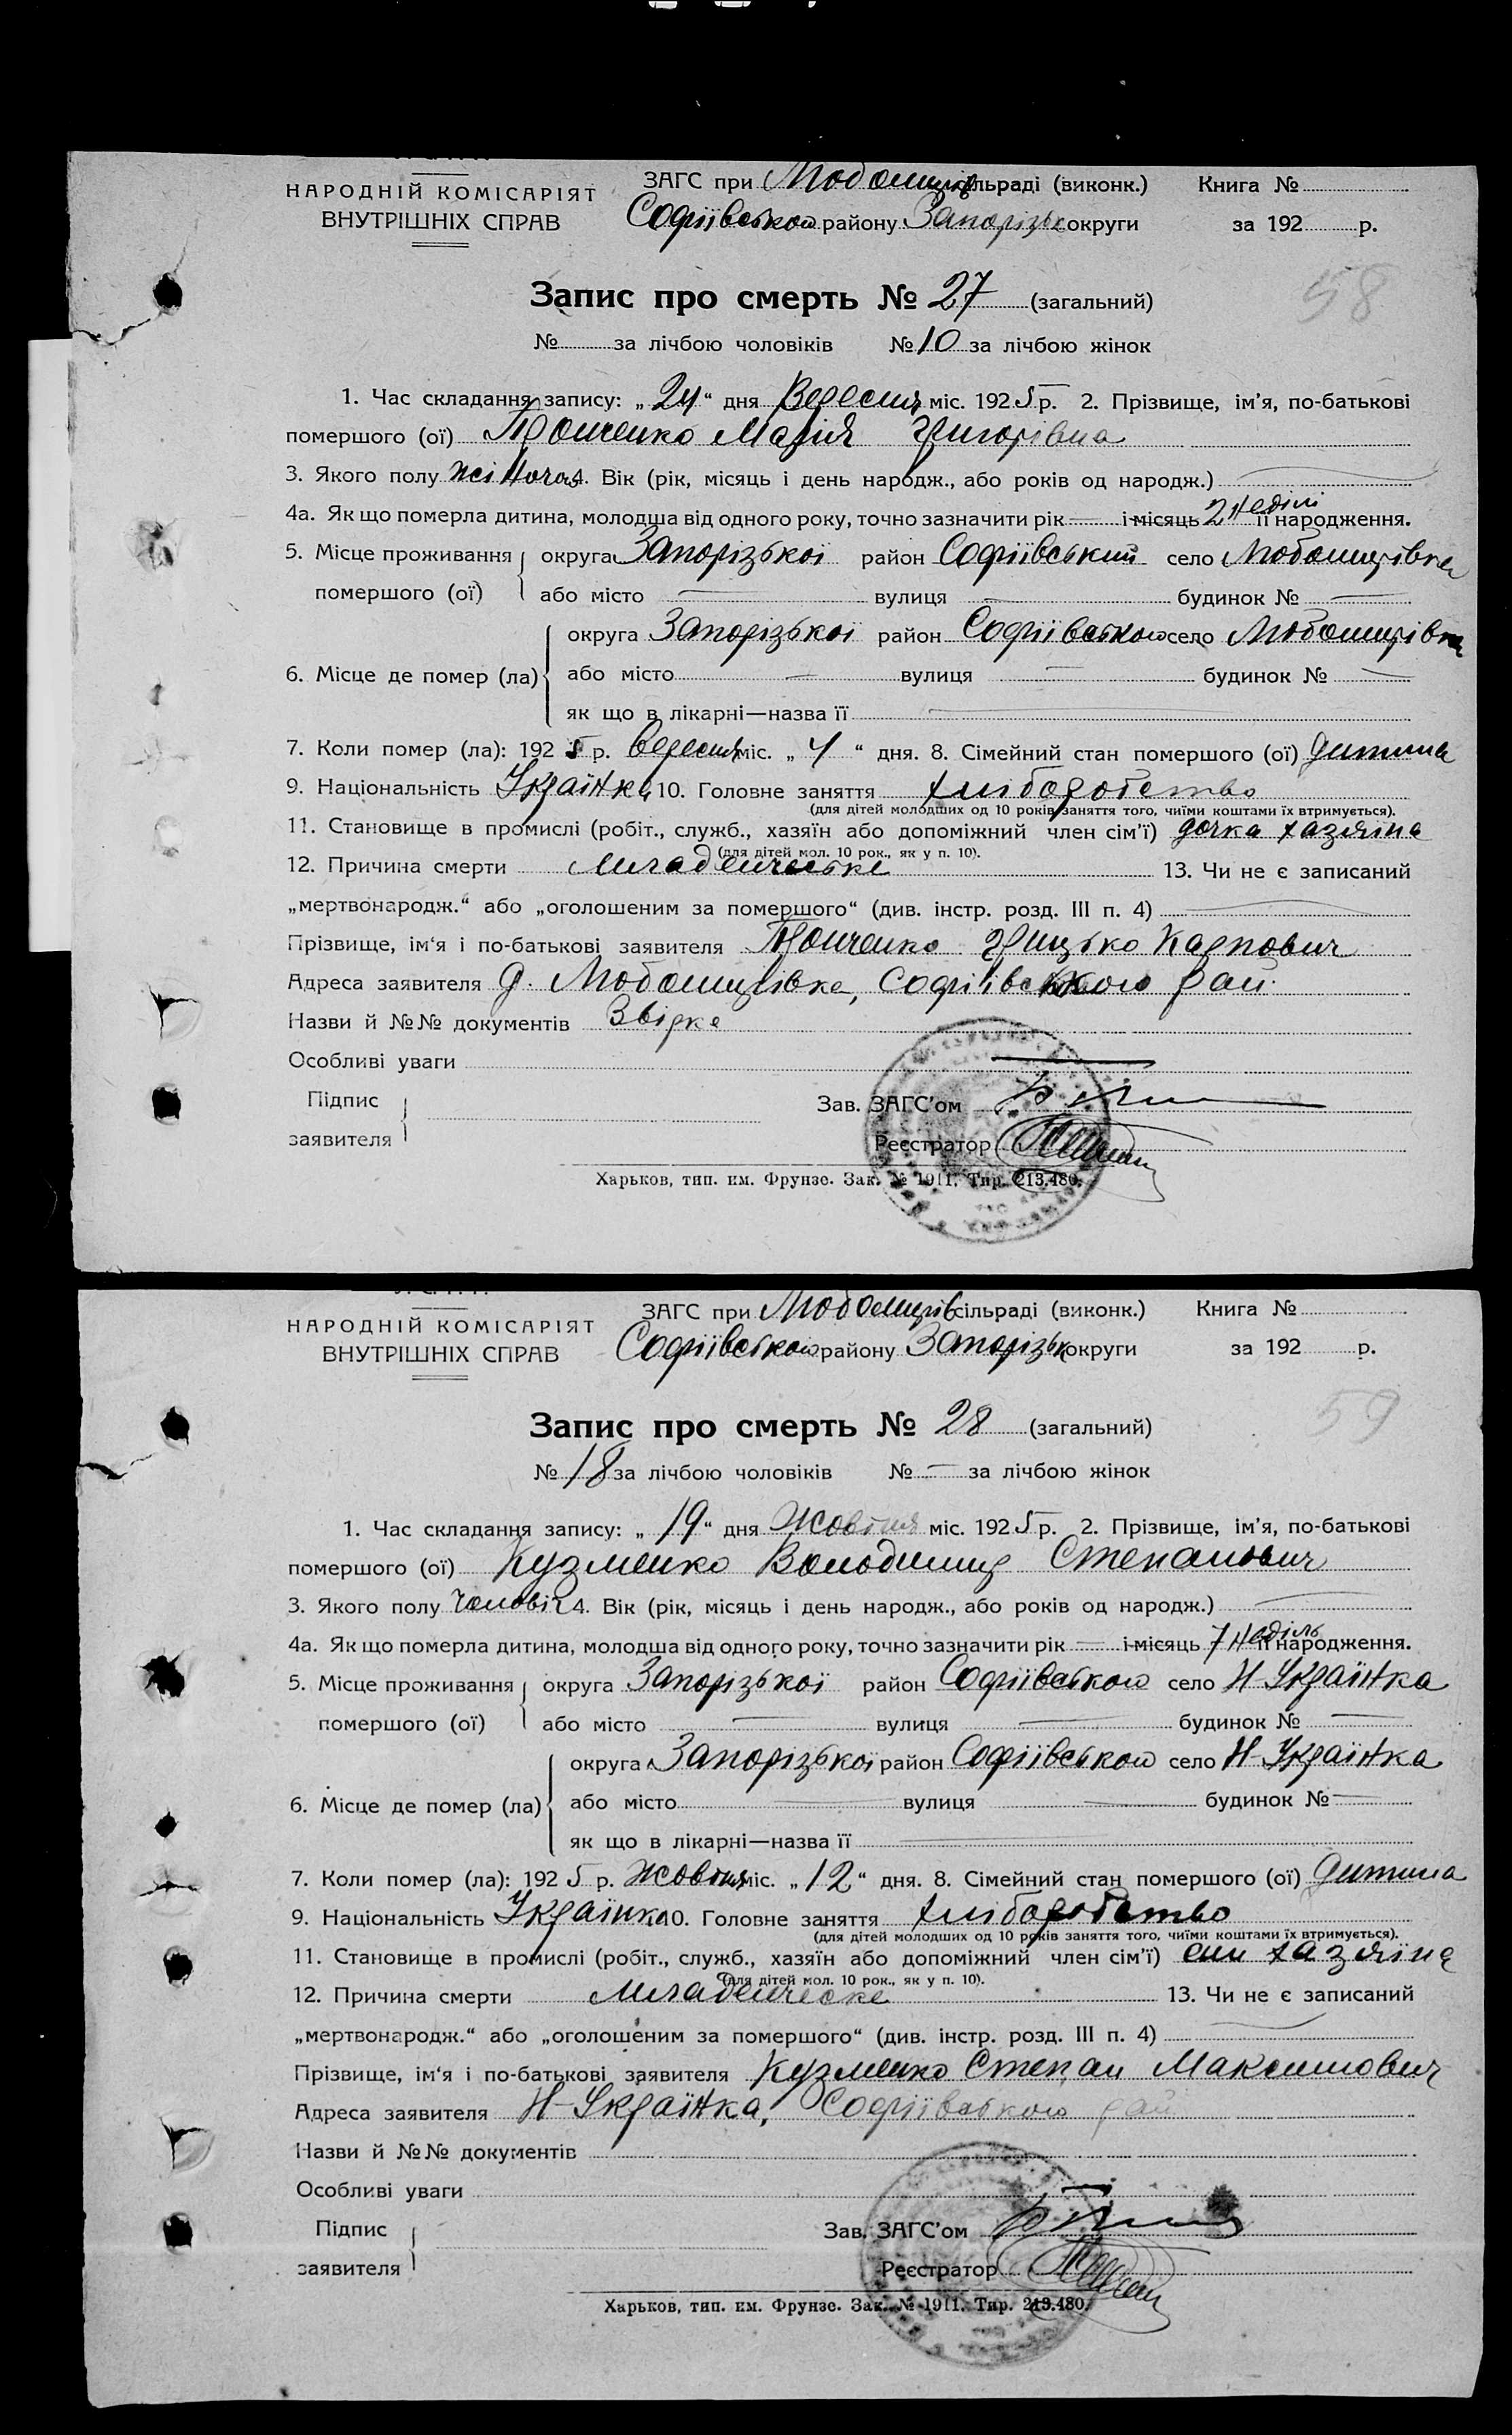 НАРОДНІЙ КОМІСАРІЯТ
ВНУТРІШНІХ СПРАВ
ЗАГС при Любомирів сільраді (виконк.) Книга №
Софіївського району Запорізьк округи за 192 р.
58
Запис про смерть № 27 (загальний)
№ за лічбою чоловіків № 10 за лічбою жінок
1. Час складання запису: „ 24 “ дня Вересня міс. 1925 р. 2. Прізвище, ім’я, по-батькові
помершого (ої) Марія Григорівна
3. Якого полу жіноча 4. Вік (рік, місяць і день народж., або років од народж.) —
4а. Як що померла дитина, молодша від одного року, точно зазначити рік — і місяць 2 неділі її народження.
5. Місце проживання округа Запорізької район Софіївський село Любомирівка
помершого (ої) або місто — вулиця — будинок № —
округа Запорізької район Софіївського село Любомирівка
6. Місце де помер (ла) або місто — вулиця — будинок № —
як що в лікарні—назва її —
7. Коли помер (ла): 1925 р. Вересня міс. „ 4 “ дня. 8. Сімейний стан помершого (ої) дитина
9. Національність Українка 10. Головне заняття хліборобство
(для дітей молодших од 10 років заняття того, чиїми коштами їх втримується).
11. Становище в промислі (робіт., служб., хазяїн або допоміжний член сім’ї) дочка хазяїна
(для дітей мол. 10 рок., як у п. 10).
12. Причина смерти младенческе 13. Чи не є записаний
„мертвонародж.“ або „оголошеним за помершого“ (див. інстр. розд. III п. 4) —
Прізвище, ім‘я і по-батькові заявителя Грицько Карпович
Адреса заявителя д. Любомирівка, Софіївського рай.
Назви й №№ документів Звірка
Особливі уваги
Підпис
заявителя
Зав. ЗАГС’ом
Реєстратор
Харьков, тип. им. Фрунзе. Зак. № 1911. Тир. 213.480.
НАРОДНІЙ КОМІСАРІЯТ
ВНУТРІШНІХ СПРАВ
ЗАГС при Любомирів сільраді (виконк.) Книга №
Софіївського району Запорізьк округи за 192 р.
59
Запис про смерть № 28 (загальний)
№ 18 за лічбою чоловіків № — за лічбою жінок
1. Час складання запису: „ 19 “ дня Жовтня міс. 1925 р. 2. Прізвище, ім’я, по-батькові
помершого (ої) Кузменко Володимир Степанович
3. Якого полу чоловіч 4. Вік (рік, місяць і день народж., або років од народж.) —
4а. Як що померла дитина, молодша від одного року, точно зазначити рік — і місяць 7 неділь її народження.
5. Місце проживання округа Запорізької район Софіївського село Н-Українка
помершого (ої) або місто — вулиця — будинок № —
округа Запорізької район Софіївського село Н-Українка
6. Місце де помер (ла) або місто — вулиця — будинок № —
як що в лікарні—назва її —
7. Коли помер (ла): 1925 р. жовтня міс. „ 12 “ дня. 8. Сімейний стан помершого (ої) дитина
9. Національність Українка 10. Головне заняття хліборобство
(для дітей молодших од 10 років заняття того, чиїми коштами їх втримується).
11. Становище в промислі (робіт., служб., хазяїн або допоміжний член сім’ї) син хазяїна
(для дітей мол. 10 рок., як у п. 10).
12. Причина смерти младенческе 13. Чи не є записаний
„мертвонародж.“ або „оголошеним за помершого“ (див. інстр. розд. III п. 4) —
Прізвище, ім‘я і по-батькові заявителя Кузменко Степан Максимович
Адреса заявителя Н-Українка, Софіївського рай
Назви й №№ документів
Особливі уваги
Підпис
заявителя
Зав. ЗАГС’ом
Реєстратор
Харьков, тип. им. Фрунзе. Зак. № 1911. Тир. 213.480.